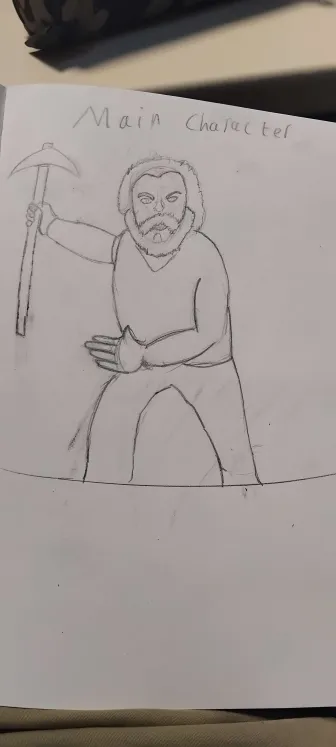 Main Character